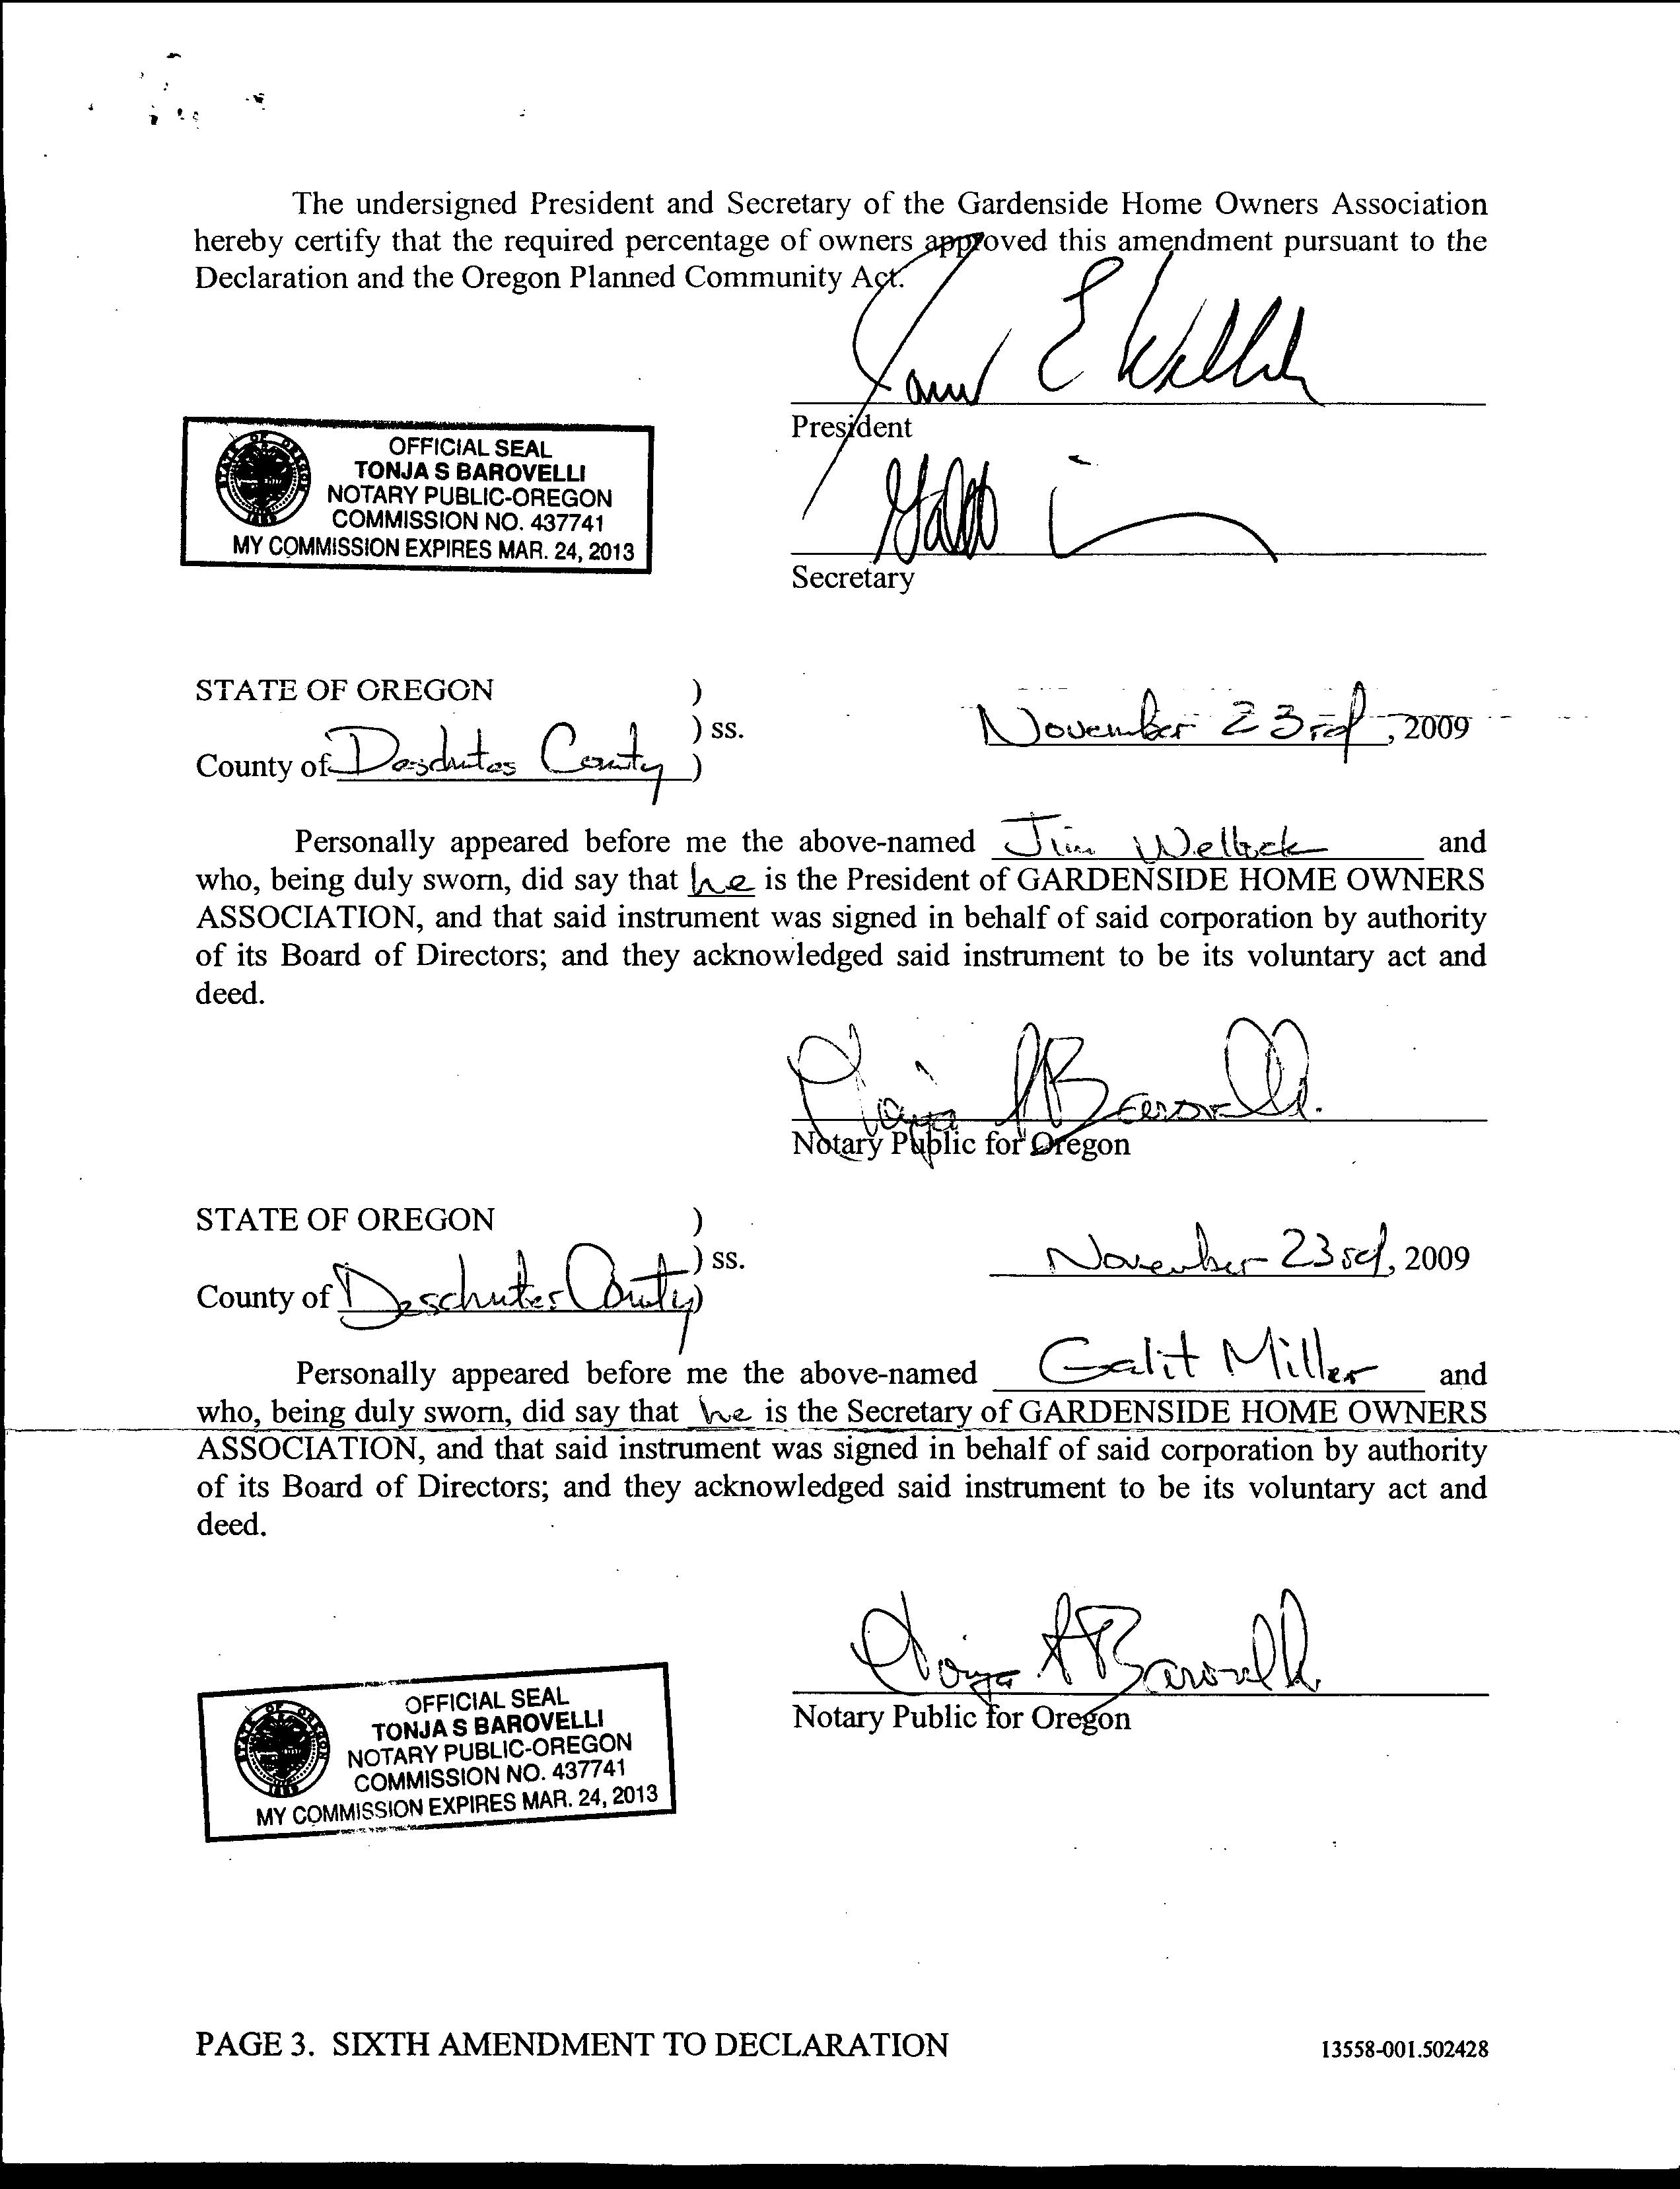 The undersigned President and Secretary of the Gardenside Home Owners Association
hereby certify that the required percentage of owners approved this amendment pursuant to the
Declaration and the Oregon Planned Community Act.
President
OFFICIAL SEAL
TONJA S BAROVELLI
NOTARY PUBLIC-OREGON
COMMISSION NO. 437741
MY COMMISSION EXPIRES MAR. 24, 2013
Secretary
STATE OF OREGON )
) ss. November 23rd, 2009
County of Deschutes County )
Personally appeared before me the above-named Jim Wellock and
who, being duly sworn, did say that he is the President of GARDENSIDE HOME OWNERS
ASSOCIATION, and that said instrument was signed in behalf of said corporation by authority
of its Board of Directors; and they acknowledged said instrument to be its voluntary act and
deed.
Tonja S Barovelli
Notary Public for Oregon
STATE OF OREGON )
) ss. November 23rd, 2009
County of Deschutes County )
Personally appeared before me the above-named Galit Miller and
who, being duly sworn, did say that he is the Secretary of GARDENSIDE HOME OWNERS
ASSOCIATION, and that said instrument was signed in behalf of said corporation by authority
of its Board of Directors; and they acknowledged said instrument to be its voluntary act and
deed.
Tonja S Barovelli
Notary Public for Oregon
OFFICIAL SEAL
TONJA S BAROVELLI
NOTARY PUBLIC-OREGON
COMMISSION NO. 437741
MY COMMISSION EXPIRES MAR. 24, 2013
PAGE 3. SIXTH AMENDMENT TO DECLARATION 13558-001.502428